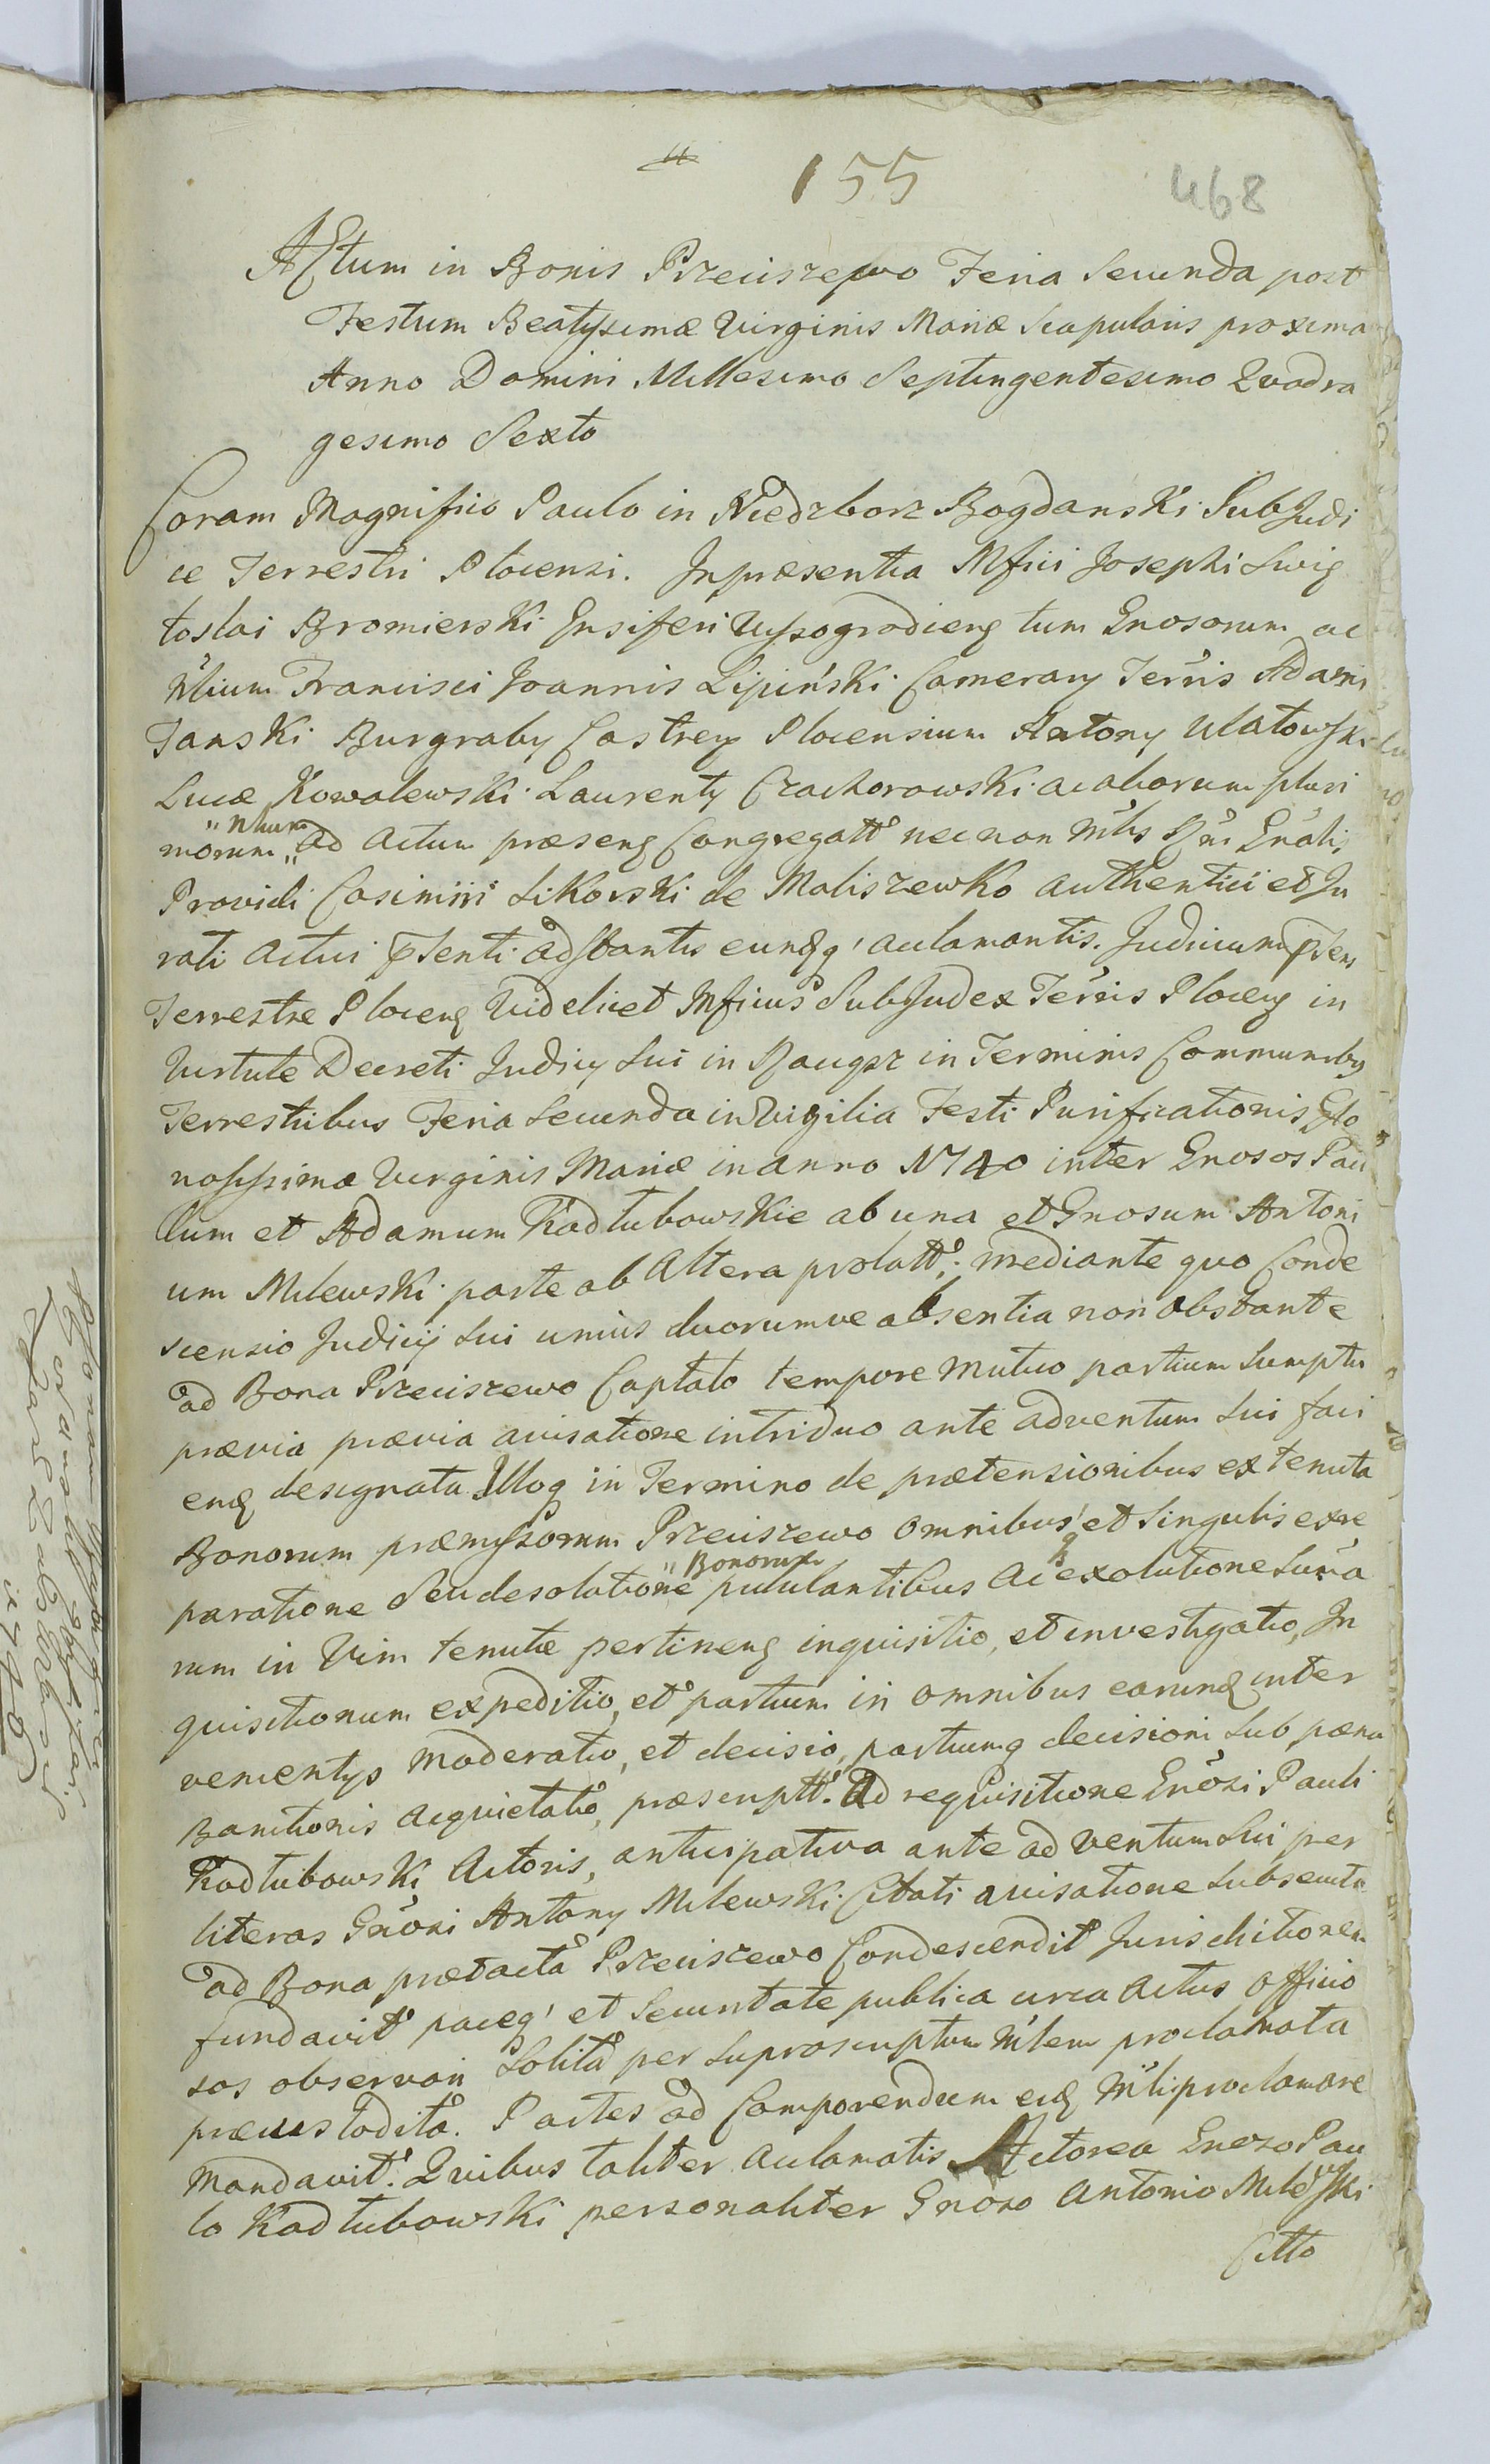 155
468
ACtum in Bonis Przeciszewo Feria Secunda post
Festum Beatyssimæ Virginis Mariæ Scapularis proxima
Anno Domini Millesimo Septingentesimo Qvadra
gesimo Sexto
Coram Magnifico Paulo in Niedzborz Bogdanski SubJudi
ce Terrestri Plocensi. Jnpræsentia Mfici Josephi Swię
toslai Bromierski Ensiferi Wyszogrodieng tum Gnosorum ac
Nlium Francisci Joannis Lipiński Camerary Terris Adami
Tanski Burgraby Castren Plocensium Antony Ulatowski
Lucæ Kowalewski Laurenty Czachorowski acaliorum pluri
morum "Nlium" ad actum præseng Congregatt nec non Mlis Rni Gnalis
Providi Casimiri Sikorski de Maliszewko authentici et Ju
rati actui pSenti adstantis eundq aclamantis. Judicium pSens
Terrestre Plocens Videlicet Mficus SubJudex Terris Ploceng in
Virtute Decreti Judicy Sui in Raygsz in Terminis Communibus
Terrestribus Feria Secunda in Vigilia Festi Purificationis Glo
riosyssimæ Virginis Mariæ in anno 1740 inter Gnosos Pau
lum et Adamum Kadlubowskie ab una et Gnosum Antoni
um Milewski parte ab Altera prolatt: mediante quo Conde
scensio Judicij Sui unius duorumve absentia non obstante
ad Bona Przeciszewo Captato tempore mutuo partium Sumptu
prævia prævia avisatione intriduo ante adventum Sui faci
end designata Jlloq in Termino de prætensionibus ex tenuta
Bonorum præmyssorum Przeciszewo omnibus et Singulis ex re
paratione Seu desolatione "Bonorum pullulantibus ac exolutione Sum̃a
rum in Vim tenutæ pertineng inquisitio, et investigatio, Jn
quisitionum expeditio, et partium in omnibus earund inter
venientys moderatio, et decisio, partiumq decisioni Sub pæna
Banitionis acquietatio, præscriptt. Ad requisitione Gnosi Pauli
Kadlubowski Actoris, anticipativa ante adventum Sui per
literas Gnosi Antony Milewski Citati avisatione Subsecuta
ad Bona prætacta Przeciszewo Condescendit Jurisdictionem
fundavit paceq et Securitate publica circa actus officio
sos observari Solita per Suprascriptum Mlem proclamata
præcustodita. Partes ad Comparendum eid Mliproclamare
Mandavit. Quibus taliter aclamatis Actorea Gnoso Pau
lo Kadlubowski personaliter Gnoso Antonio Milewski
Citto